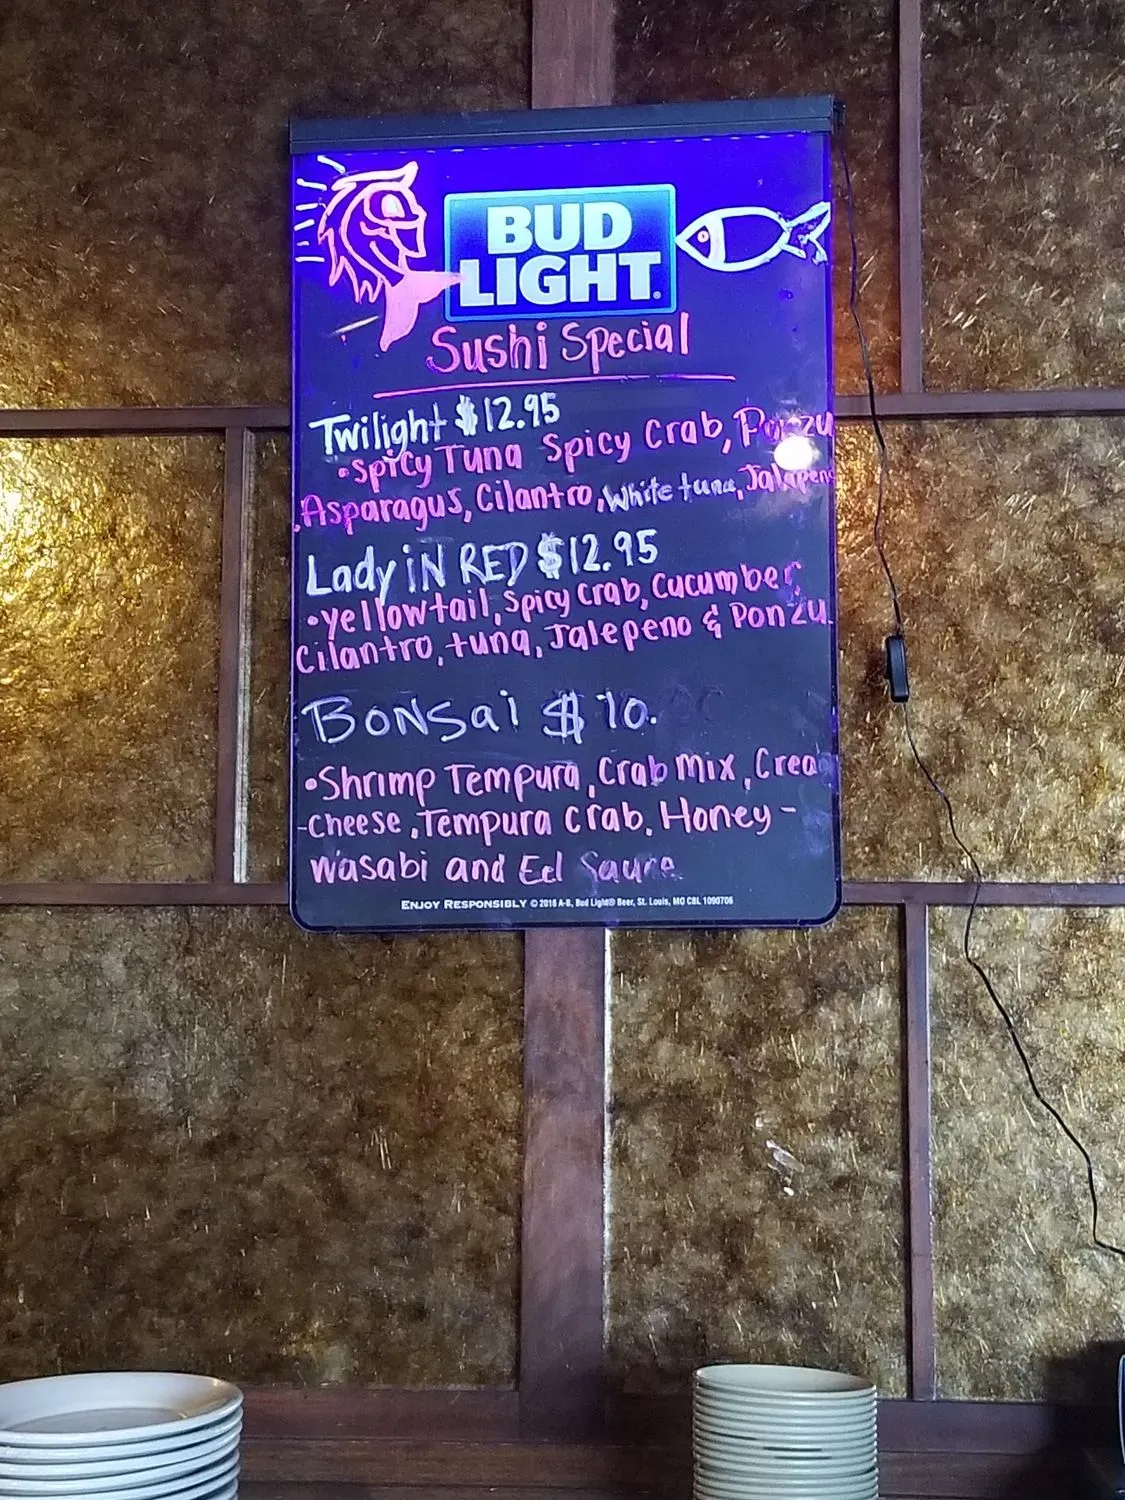 BUD
LIGHT
Sushi Special
Twilight $12.95
•Spicy Tuna Spicy Crab, Ponzu
Asparagus, Cilantro, White tuna, Jalapeno
Lady iN RED $12.95
•Yellowtail, Spicy Crab, Cucumber,
Cilantro, tuna, Jalepeno & Ponzu
BoNSai $10.
•Shrimp Tempura, Crab Mix, Crea
-Cheese, Tempura Crab, Honey-
Wasabi and Eel Sauce
ENJOY RESPONSIBLY © 2016 A-B, Bud Light® Beer, St. Louis, MO CBL 1090706